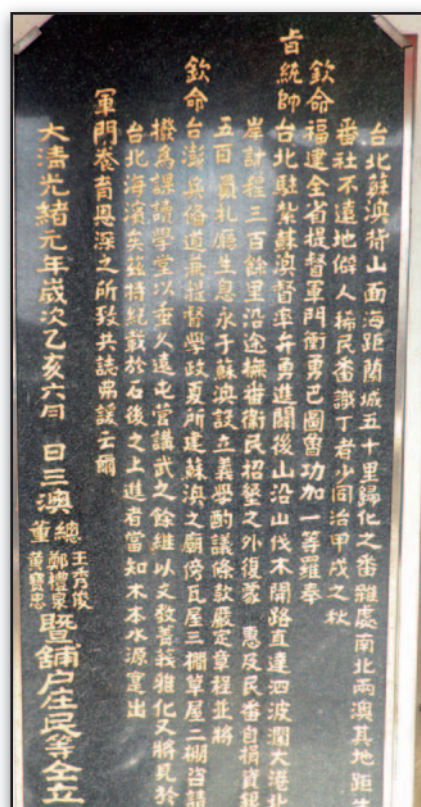 台北蘇澳山面海距蘭城五十里歸化之番雜處南北兩澳其地距
番社不遠地僻人稀民番識丁者少同治甲戌之秋
欽命福建全省提督軍門衝勇巴圖魯功加一等羅奉
旨統帥台北駐紮蘇澳督率弁勇進闢後山沿山伐木開路直達泗波瀾大港北
岸計程三百餘里沿途撫番衛民招墾之外復蒙 惠及民番自捐資銀
五百員札廳生息永于蘇澳設立義學酌議條款嚴定章程並將
欽命台澎兵俻道兼提督學政夏所建蘇澳之廟傍瓦屋三棚草屋二棚咨請
撥為課讀學堂以垂久遠屯營講武之餘継以文教菁莪雅化又將見於
台北海濱矣茲特紀載於石後之上進者當知木本水源寔出
軍門養育恩深之所致共誌弗諼云爾
大清光緒元年歲次乙亥六月 日三澳總董 王秀俊 鄭禮泉 黃寶忠 暨舖户庄民等仝立